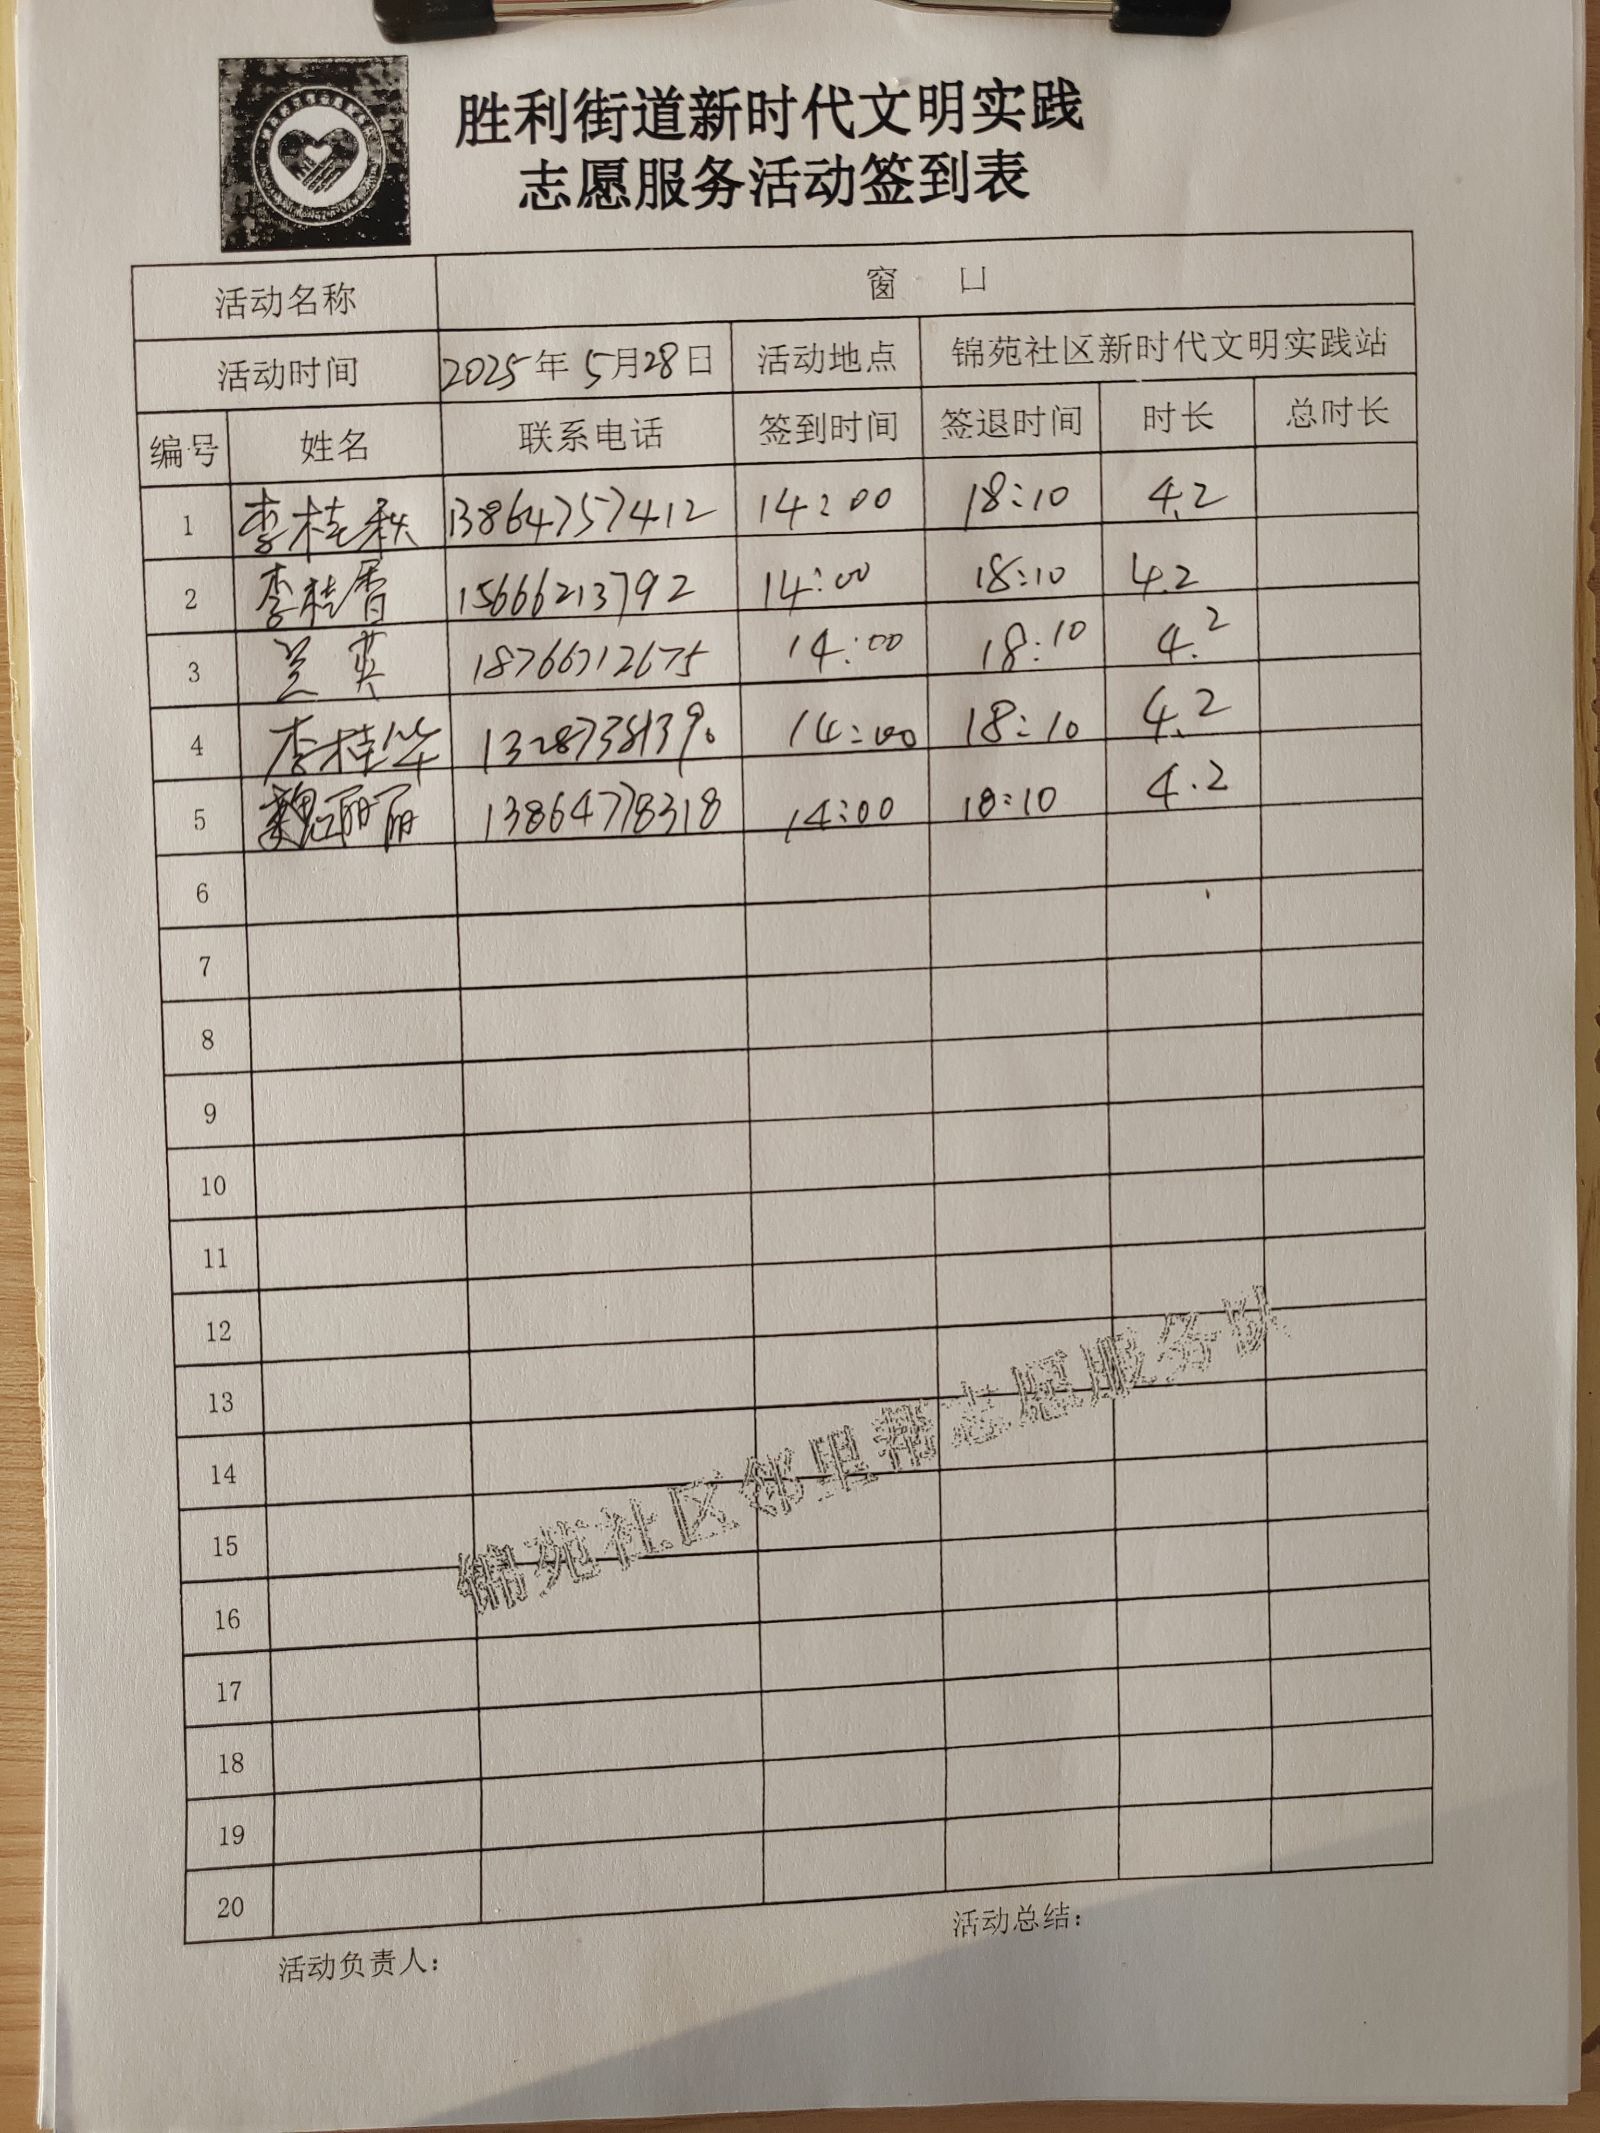 胜利街道新时代文明实践
志愿服务活动签到表
活动名称 窗 口
活动时间 2025年5月28日 活动地点 锦苑社区新时代文明实践站
编号 姓名 联系电话 签到时间 签退时间 时长 总时长
1 李桂秋 13864757412 14:00 18:10 4.2
2 李桂香 15666213792 14:00 18:10 4.2
3 兰英 18766712675 14:00 18:10 4.2
4 李桂华 13287381390 14:00 18:10 4.2
5 魏丽丽 13864778318 14:00 18:10 4.2
6
7
8
9
10
11
12
13
14
15
16
17
18
19
20
锦苑社区邻里帮志愿服务队
活动负责人： 活动总结：